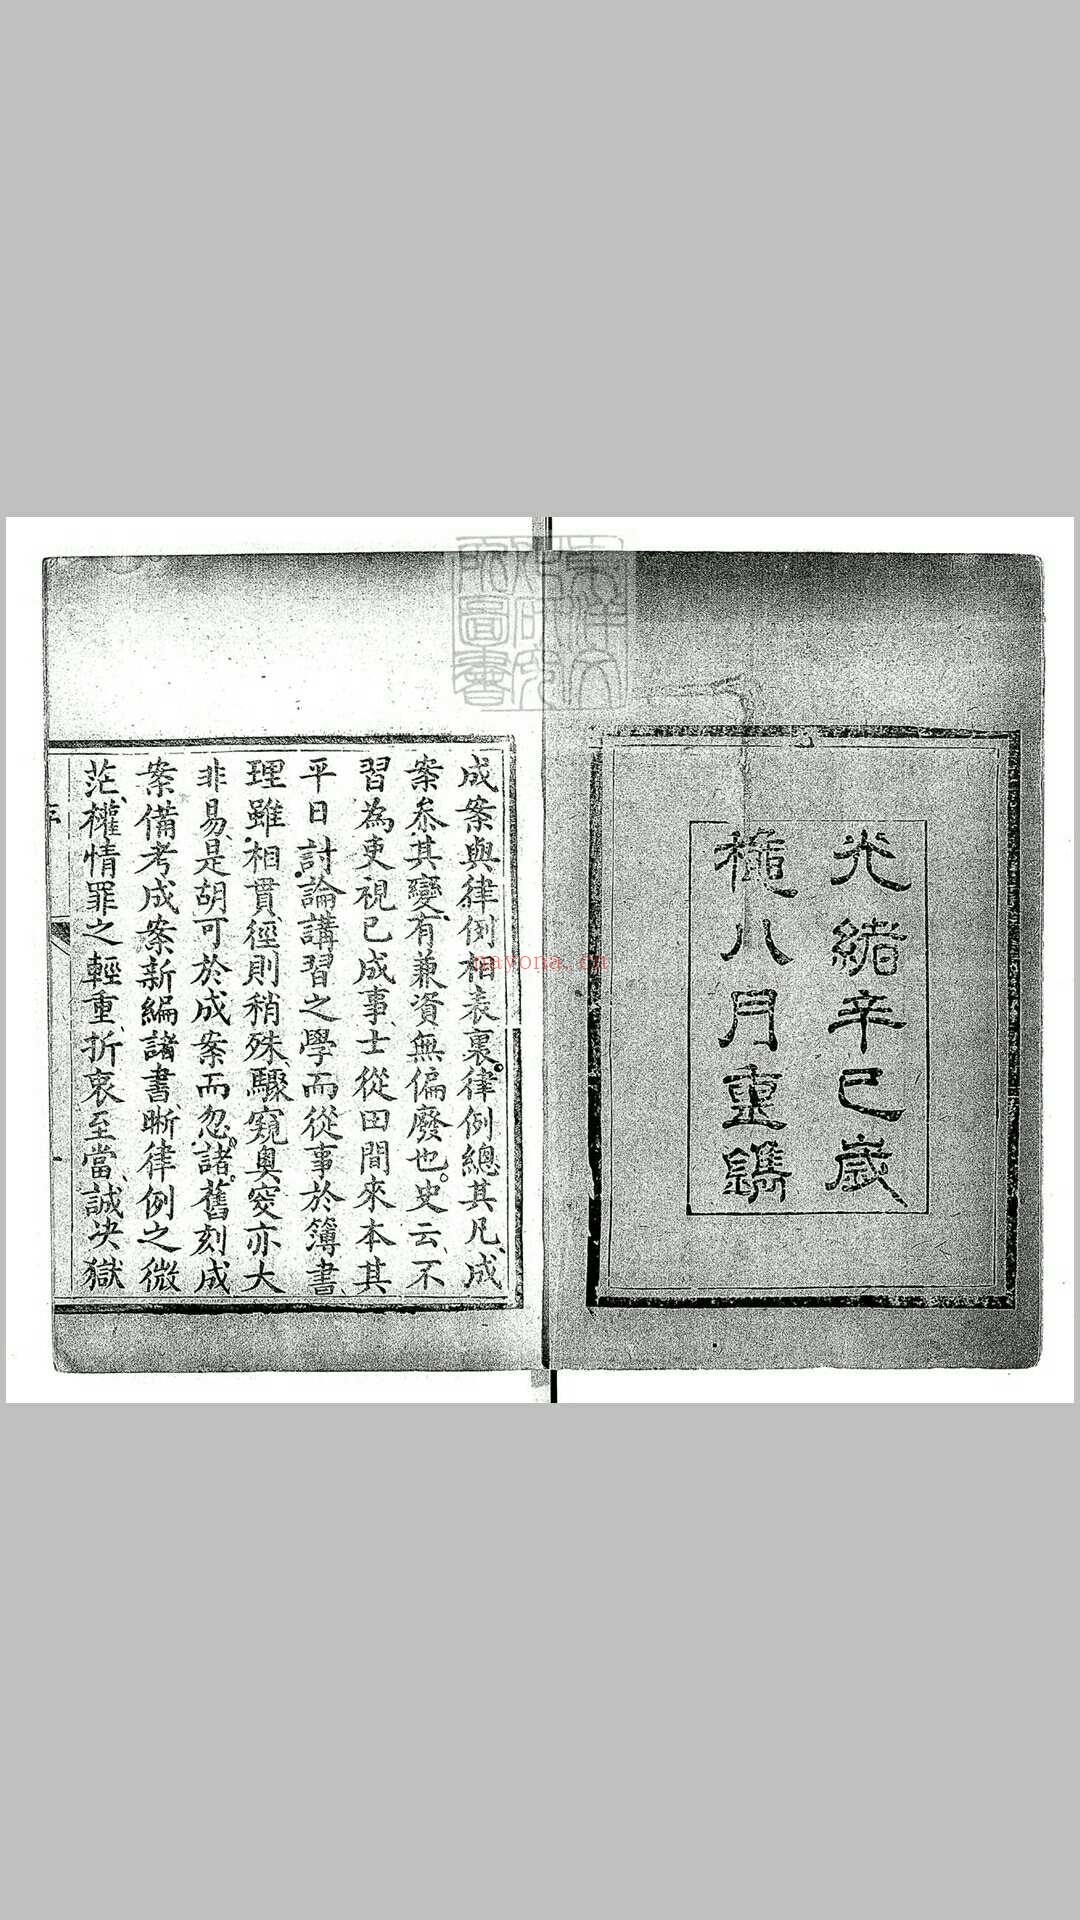 光緒辛巳歲
秋八月重鐫
成案與律例相表裏律例總其凡成
案叅其變有兼資無偏廢也史云不
習為吏視已成事士從田間來本其
平日討論講習之學而從事於簿書
理雖相貫徑則稍殊驟窺奧窔亦大
非易是胡可於成案而忽諸舊刻成
案備考成案新編諸書晰律例之微
茫權情罪之輕重折衷至當誠决獄
nayona.cn